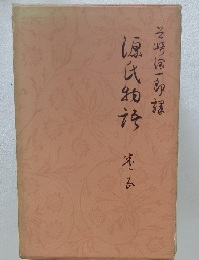 谷崎潤一郎譯
源氏物語
巻五